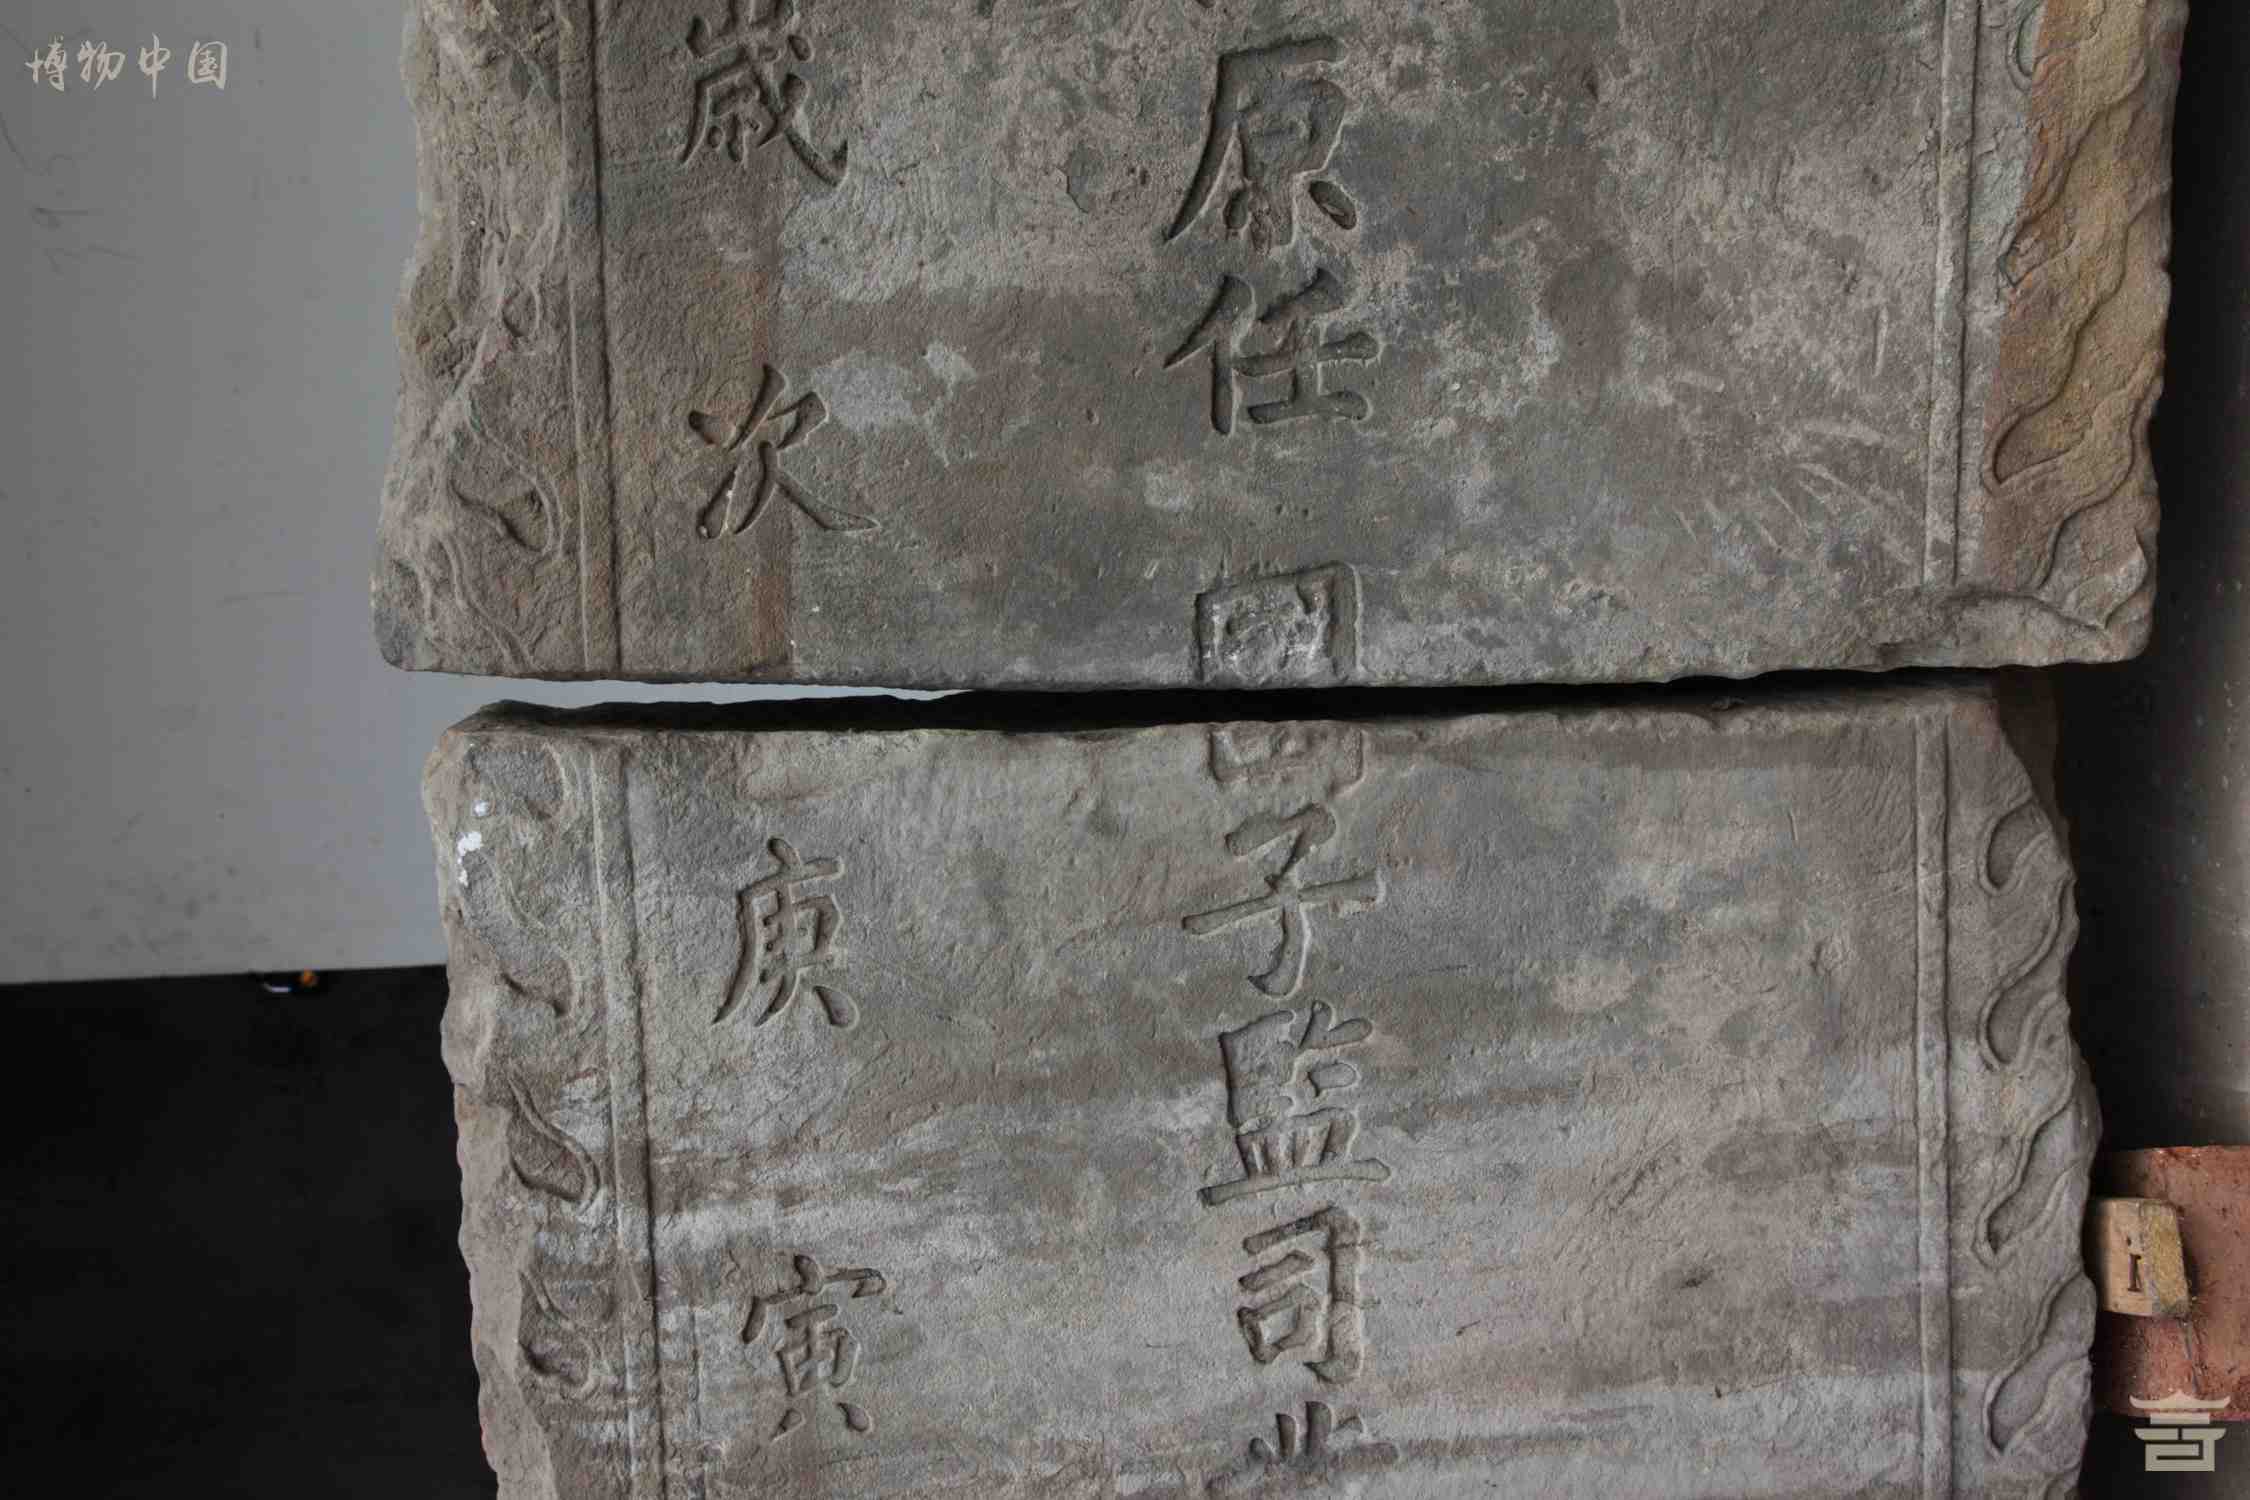 博物中国
原任國子監司業
歲次庚寅
1